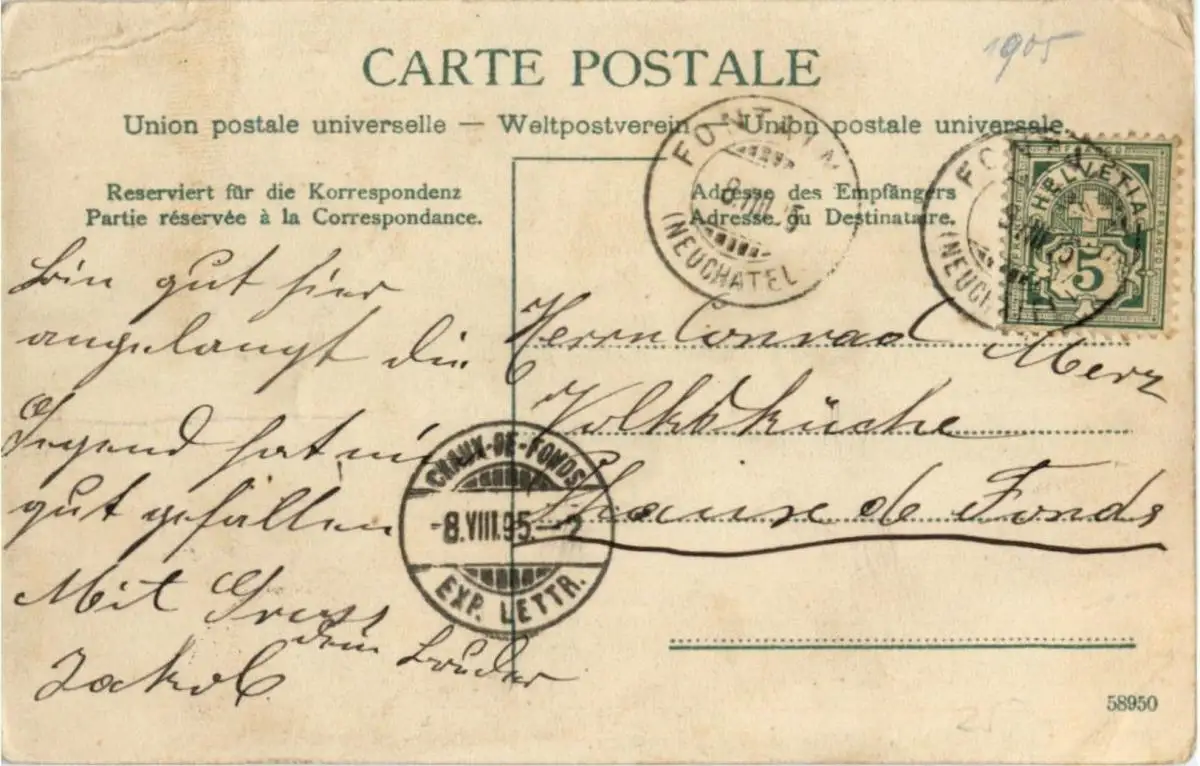 1905
CARTE POSTALE
Union postale universelle — Weltpostverein — Union postale universale.
Reserviert für die Korrespondenz
Partie réservée à la Correspondance.
Adresse des Empfängers
Adresse du Destinataire.
(NEUCHATEL
HELVETIA
5
(NEUCHATEL
Bin gut hier
angelangt die
Gegend hat mir
gut gefallen
Mit Gruss
dein Bruder
Jakob
Herrn Conrad Merz
Volksküche
Chaux de Fonds
CHAUX-DE-FONDS
-8.VIII.05.-2
EXP. LETTR.
58950
25